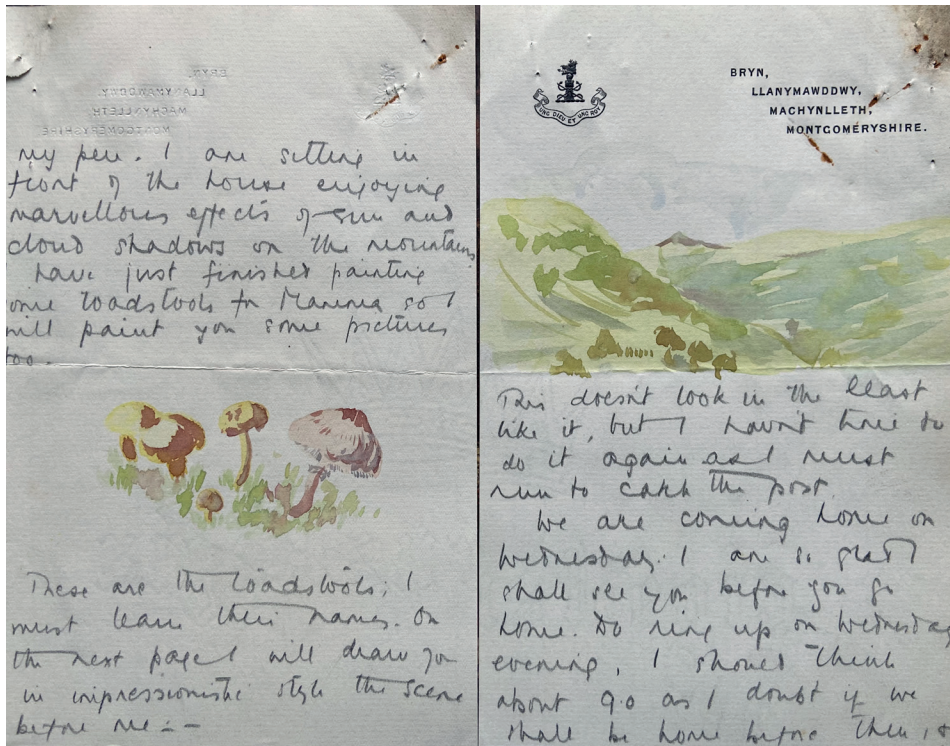 my pen. I am sitting in
front of the house enjoying
marvellous effects of sun and
cloud shadows on the mountains
have just finished painting
some toadstools for Mamma so I
will paint you some pictures
too.
These are the toadstools; I
must learn their names. On
the next page I will draw you
in impressionistic style the scene
before me :—
UNG DIEU ET UNG ROY
BRYN,
LLANYMAWDDWY,
MACHYNLLETH,
MONTGOMERYSHIRE.
This doesn't look in the least
like it, but I havn't time to
do it again as I must
run to catch the post.
We are coming home on
Wednesday. I am so glad I
shall see you before you go
home. Do ring up on Wednesday
evening, I should think
about 9.0 as I doubt if we
shall be home before then, &